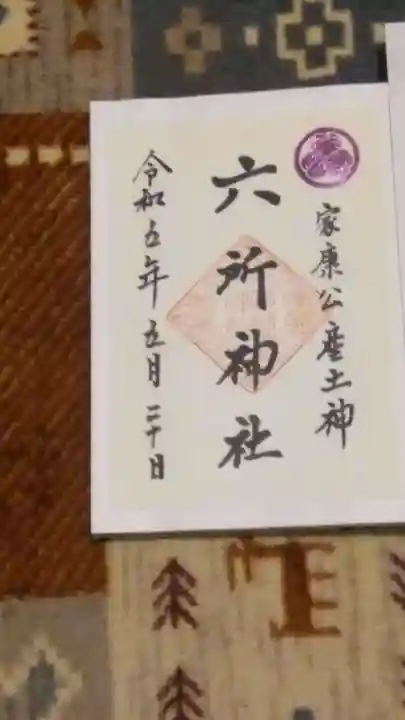 家康公産土神
六所神社
令和五年五月二十日